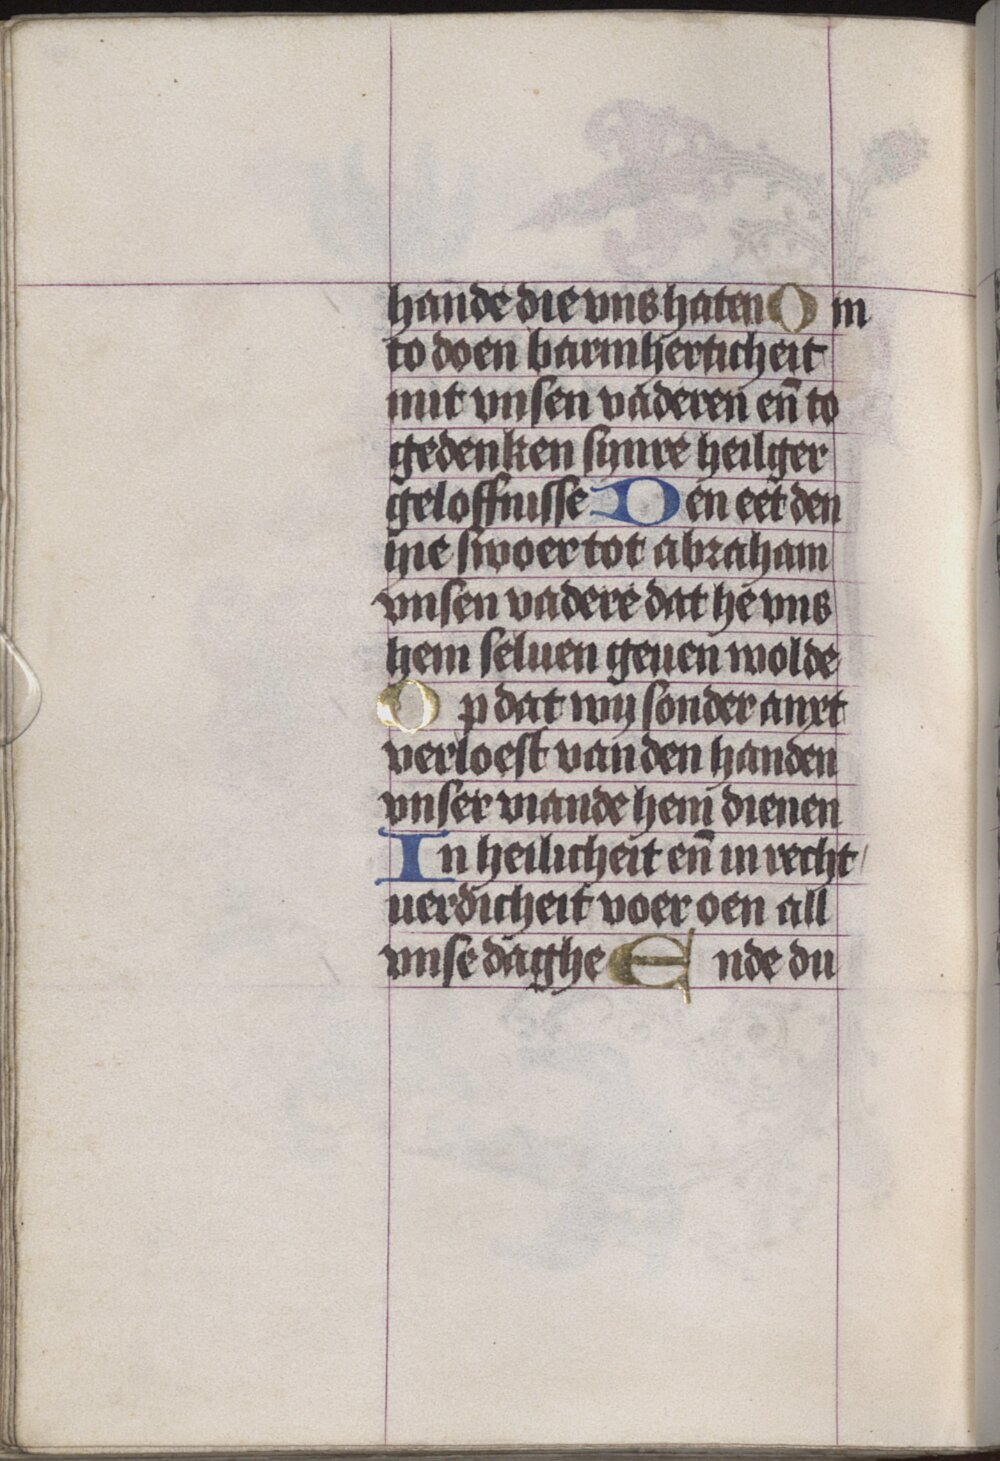 hande die vns haten Om
to doen barmherticheit
mit vnsen vaderen en̄ to
gedenken synre heilger
geloffnisse Den eet den
he swoer tot abraham
vnsen vadere dat he vns
hem seluen geuen wolde
Op dat wy sonder anxt
verloest van den handen
vnser viande hem dienen
In heilicheit en̄ in recht
uerdicheit voer oen all
vnse daghe Ende du